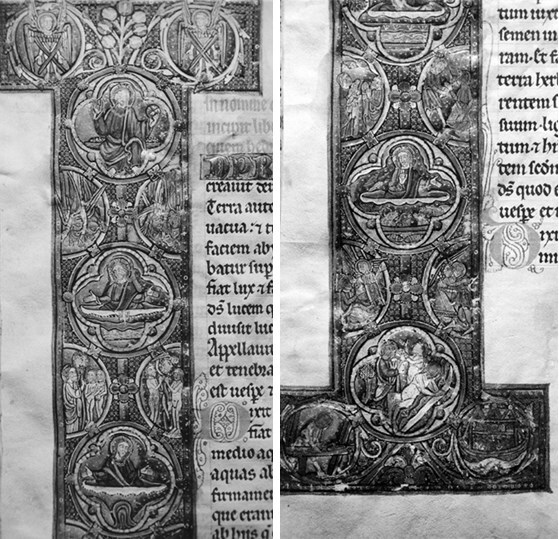 in nomine
incipit lib
creauit deu
Terra aute
uacua: ⁊ t
faciem ab
batur sup
fiat lux ⁊ f
ds lucem q
diuisit luc
Appellauit
et tenebra
est uespe ⁊
Dixit
fiat
medio aq
aquas ab
firmamen
que eran
ab hiis q
tum iuxt
semen in
ram. Et fa
terra herb
rentem s
suum. lig
tum. ⁊ h
tem scdm
ds quod e
uespe et
Dixit